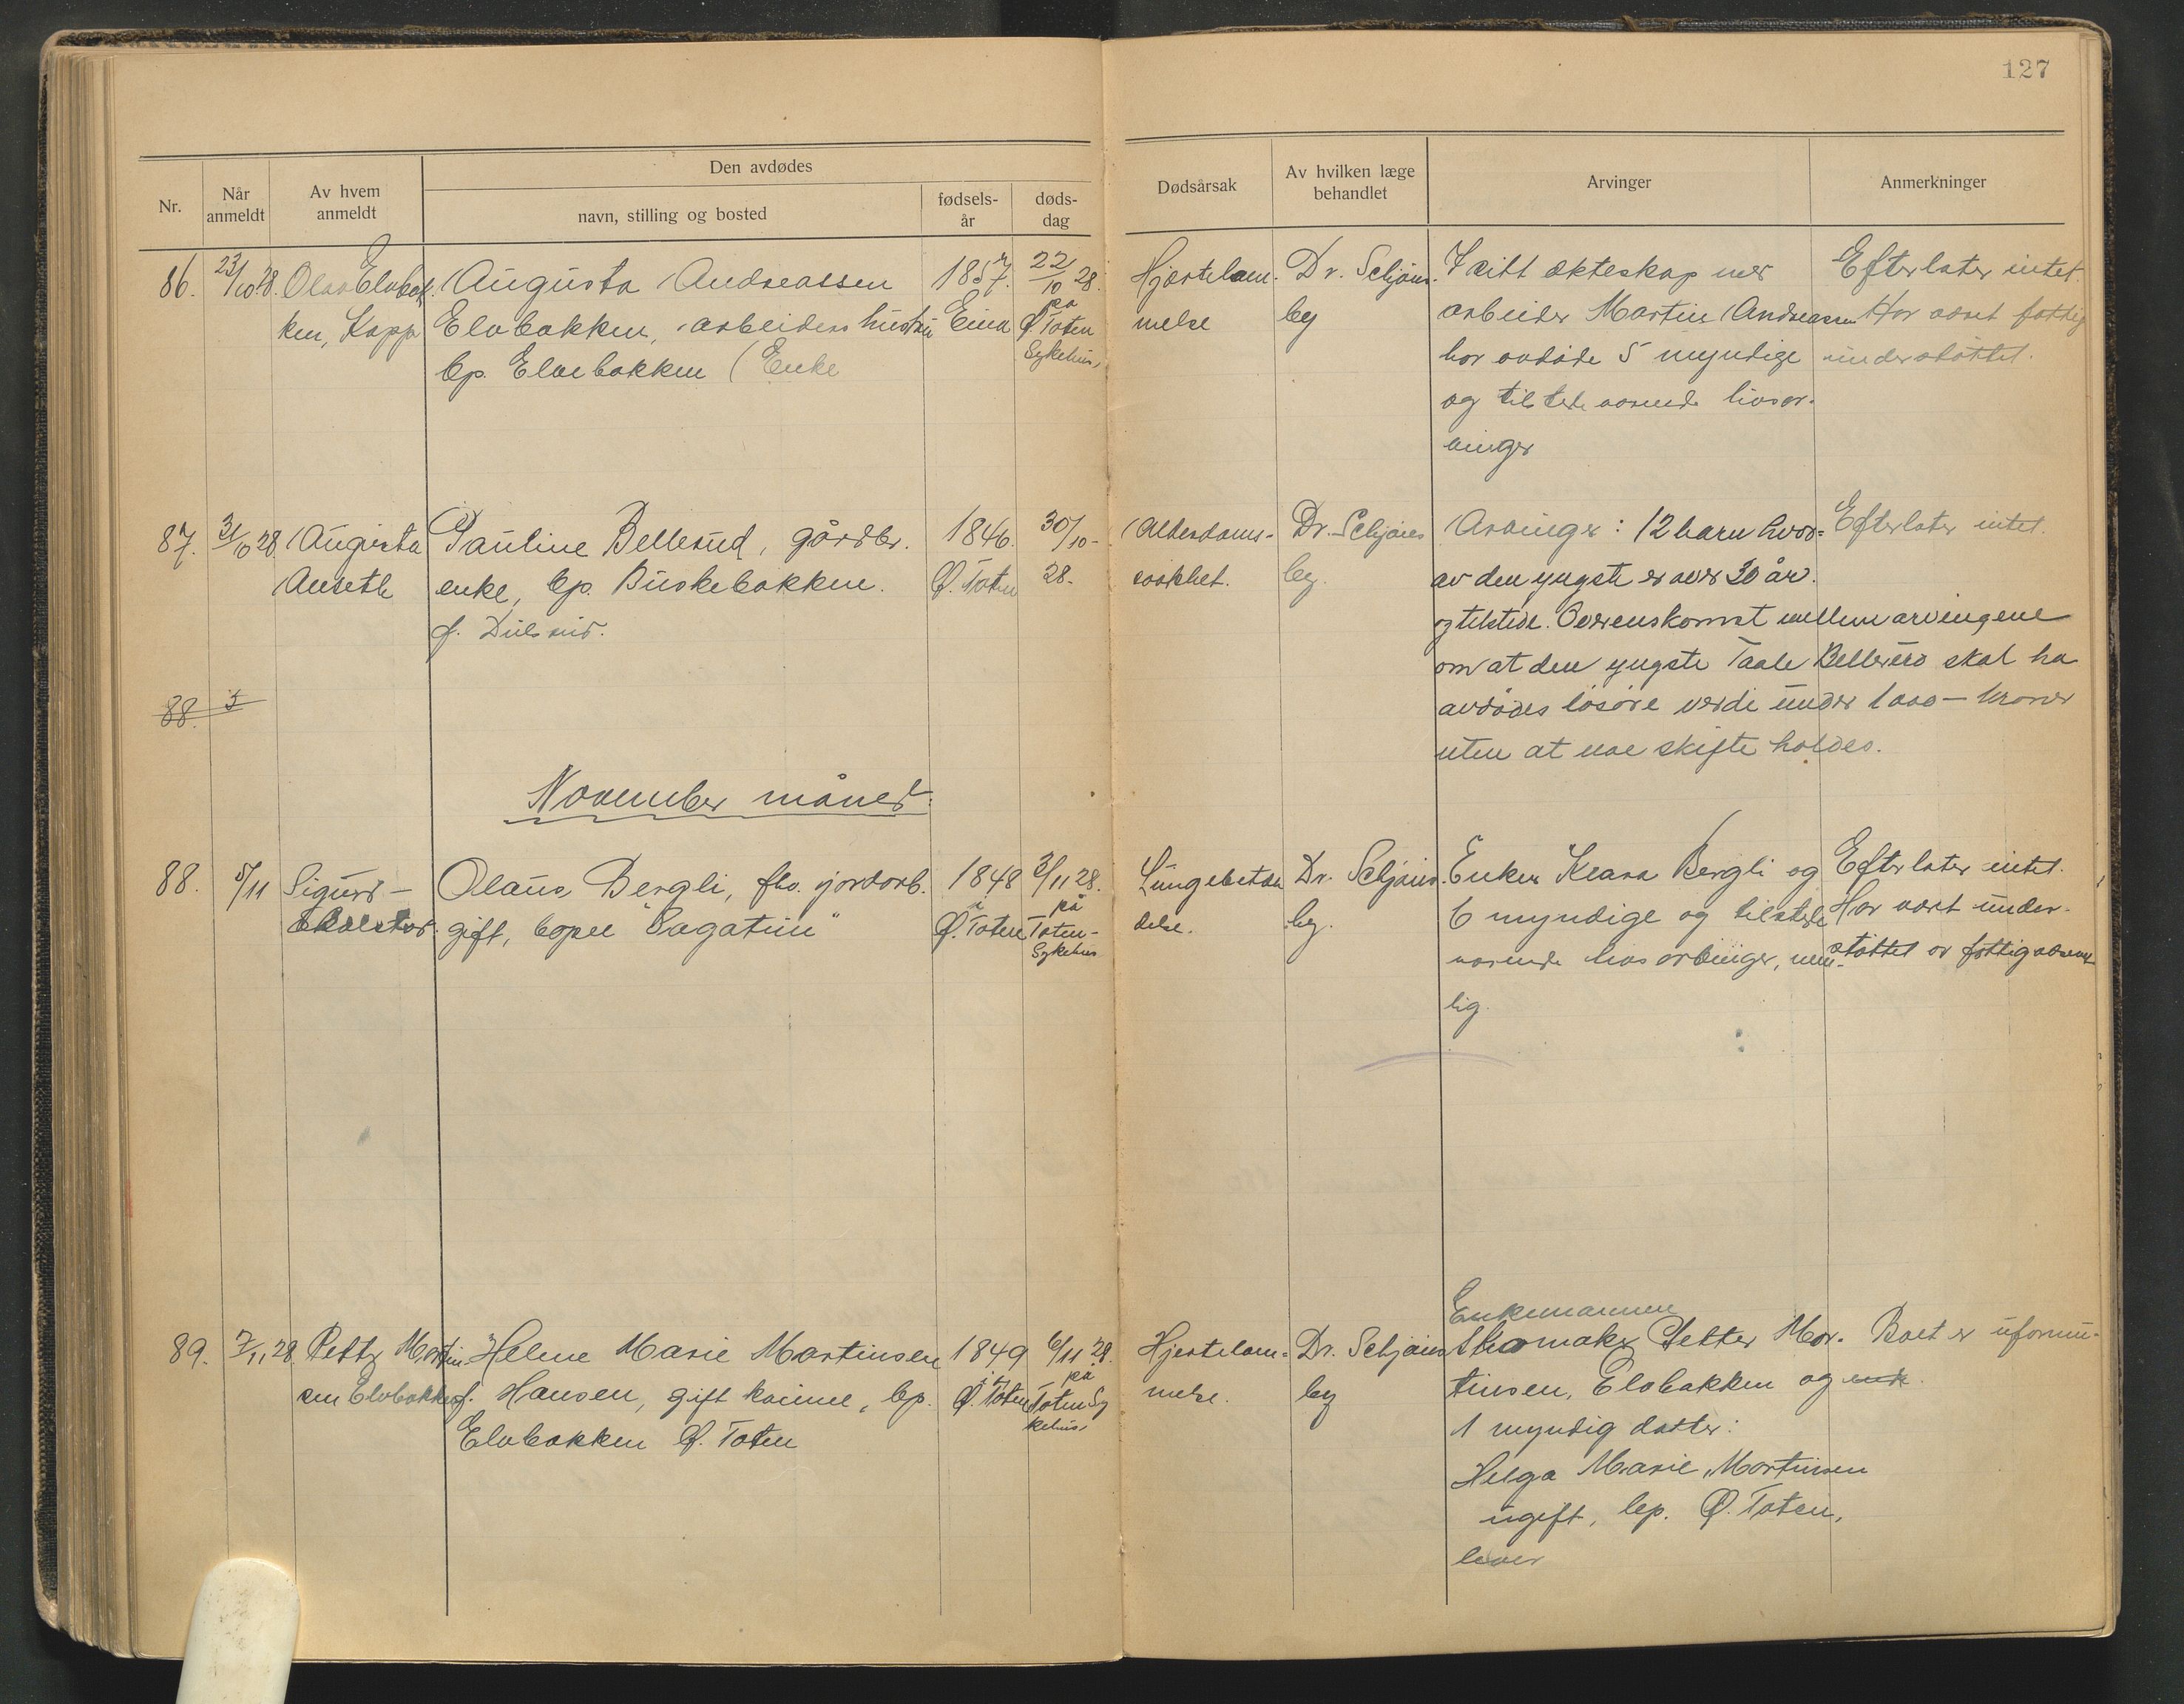 127
Nr.
Når anmeldt
Av hvem anmeldt
Den avdødes
navn, stilling og bosted
fødsels-år
døds-dag
Dødsårsak
Av hvilken læge behandlet
Arvinger
Anmerkninger
86.
23/10 28.
Olav Elvebak-
ken, Kapp
Augusta Andreassen
Elvbakken, arbeiders hustru
bp. Elvebakken (Enke
1857.
Eina
22/10 28.
på
Ø. Toten
Sykehus,
Hjertelam-
melse
Dr. Schjøns-
by
I sitt ekteskap med
arbeider Martin Andreassen
har avdøde 5 myndige
og tilstedeværende livsar-
vinger
Efterlater intet.
Har været fattig
understøttet.
87.
31/10 28.
Augusta
Anseth
Pauline Bellerud, gårdbr.
enke, bp. Buskebakken.
f. Dulsrud.
1846.
Ø. Toten
30/10-
28.
Alderdoms-
svakhet.
Dr. Schjøns
by.
Arvinger: 12 barn hvor-
av den yngste er over 30 år.
og tilstede. Overenskomst mellem arvingene
om at den yngste Taale Bellerud skal ha
avdødes løsøre verdi under 1000 - kroner
uten at noe skifte holdes.
Efterlater intet.
88. 5
November måned.
88.
5/11
Sigurd
Olaus Bergli, fhv. jordarb.
gift, bopel "Sagatun"
1848
Ø. Toten
3/11 28.
på
Toten-
Sykehus
Lungebeten
delse.
Dr. Schjøns-
by.
Enken Klara Bergli og
6 myndige og tilstede
værende livsarvinger, nem-
lig.
Efterlater intet.
Har vært under-
støttet av fattigvesenet
89.
7/11 28.
Petter Martin
sen Elvbakken
Helene Marie Martinsen
f. Hansen, gift kvinne, bp.
Elvbakken Ø. Toten
1849
i
Ø. Toten
6/11 28.
på
Toten Sy
kehus,
Hjertelam-
melse.
Dr. Schjøns
by
Enkemannen
Skomaker Petter Mar-
tinsen, Elvbakken og enk.
1 myndig datter:
Helga Marie Martinsen
ugift, bp. Ø. Toten,
lever
Boet er uformu-